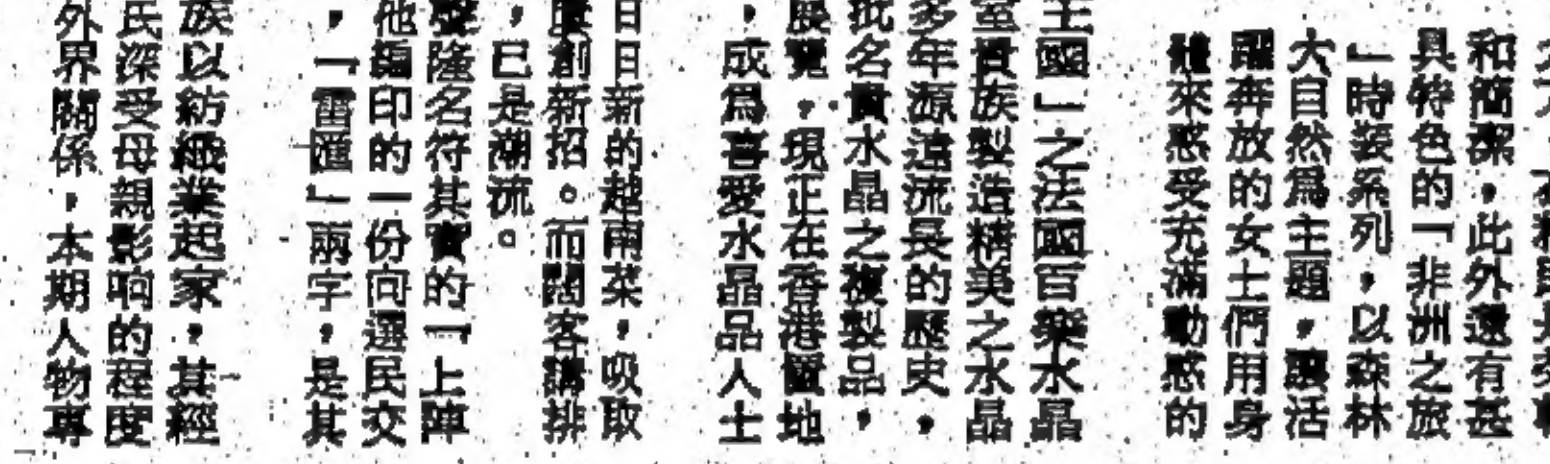 和簡潔，此外還有甚
具特色的「非洲之旅
」時裝系列，以森林
大自然爲主題，讓活
躍奔放的女士們用身
體來感受充滿動感的
王國」之法國百樂水晶
室貴族製造精美之水晶
多年源遠流長的歷史，
批名貴水晶之複製品，
展覽，現正在香港置地
，成爲喜愛水晶品人士
日日新的越南菜，吸取
屢創新招。而闊客講排
，已是潮流。
聲隆名符其實的「上陣
他編印的一份向選民交
，「雷匯」兩字，是其
族以紡織業起家，其經
氏深受母親影响的程度
外界關係，本期人物專